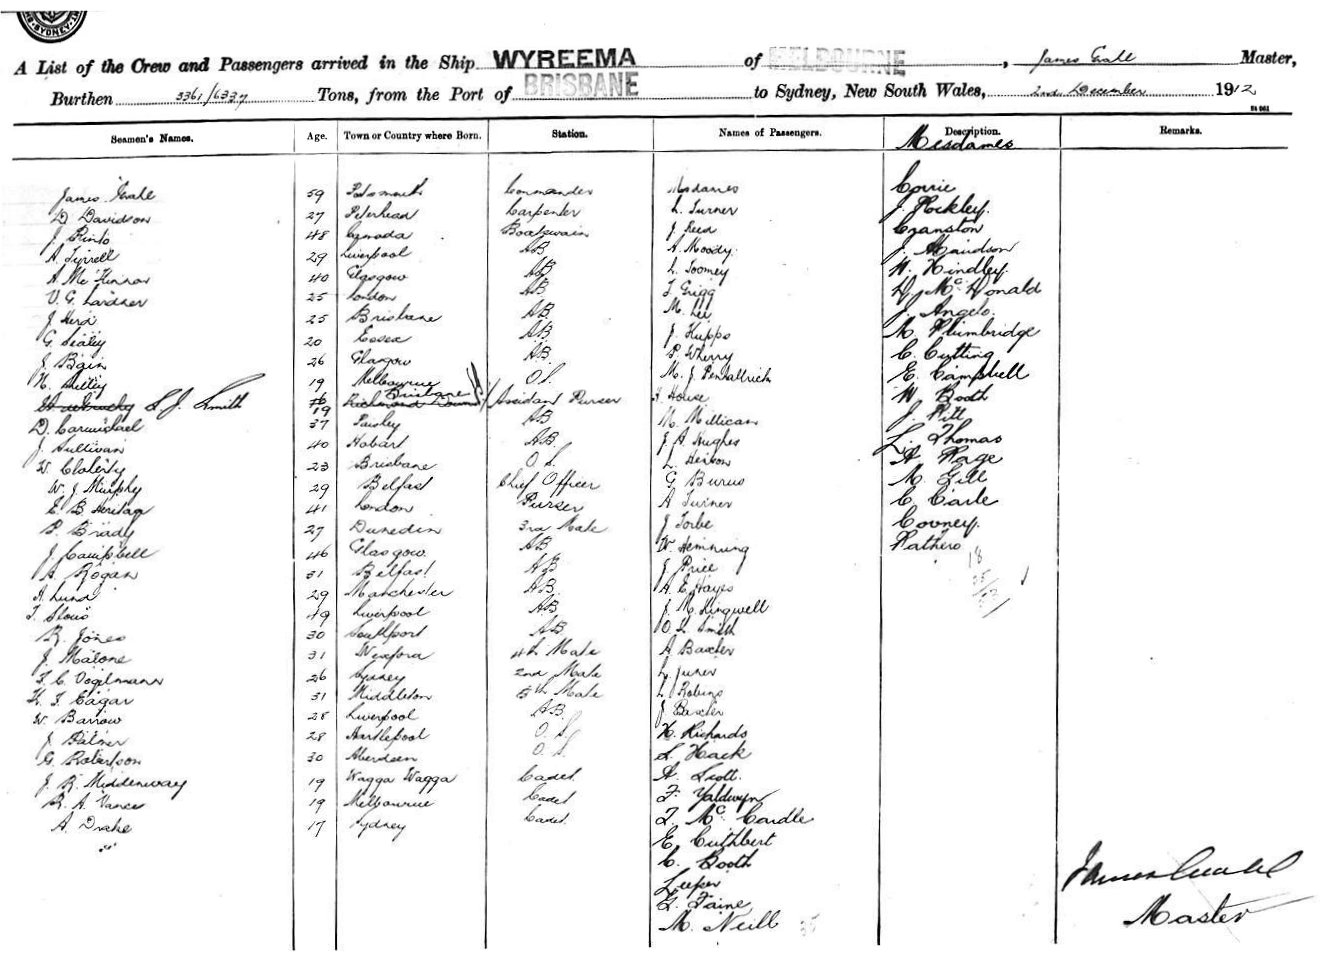 SYDNEY
A List of the Crew and Passengers arrived in the Ship WYREEMA of MELBOURNE, James Gale Master,
Burthen 3361/6337 Tons, from the Port of BRISBANE to Sydney, New South Wales, 2nd December 1912
Seamen's Names. Age. Town or Country where Born. Station. Names of Passengers. Description. Remarks.
Mesdames
James Gale 59 Portsmouth Commander Mesdames Corrie
D Davidson 27 Peterhead Carpenter L. Turner J. Hockley.
J. Pinto 48 Canada Boatswain J. Reed Cranston
A. Tyrrell 29 Liverpool AB A. Moody. J. Davidson
A. McKinnon 40 Glasgow AB L. Toomey W. Hindley.
V. G. Lardner 25 London AB T Grigg D. McDonald
J Herd 25 Brisbane AB M. Lee J. Angelo.
G. Sealey 20 Essex AB J. Hupps M. Plumbridge
J. Bain 26 Glasgow AB P. Wherry C. Cutting
19 Melbourne O.S. M. J. Penhallrich E. Campbell
S. J. Smith 19 Brisbane Assistant Purser F House W Booth
D. Carmichael 37 Paisley AB M. Millican J. Pitt
J. Sullivan 40 Hobart AB J. A Hughes L. Thomas
W. Cloherty 23 Brisbane O S. L. Henson A Page
W. J. Murphy 29 Belfast Chief Officer G. Burns M. Gill
E. B. Heritage 41 London Purser A Turner C. Carle
P. Brady 27 Dunedin 3rd Mate J Forbe Covney.
J. Campbell 46 Glasgow AB W. Hemming Pathero
A. Rogan 31 Belfast AB J. Price 18
A. Lund 29 Manchester AB. A. E. Hayes
T. Stows 49 Liverpool AB J. M. Kingwell
R. Jones 30 Southport AB O. L. Smith
J. Malone 31 Wexford 4th Mate A Baxter
F. C. Vogelmann 26 Sydney 2nd Mate L. Juner
H. F. Eagar 31 Middleton 5th Mate L. Robins
W. Barrow 28 Liverpool AB J. Baxter
J. Palmer 28 Hartlepool O. S H. Richards
G. Robertson 30 Aberdeen O. S. S. Hack
J. R. Middenway 19 Wagga Wagga Cadet A. Scott.
R. A. Vance 19 Melbourne Cadet F. Yaldwyn
A. Drake 17 Sydney Cadet T. McCardle
E. Cuthbert
C. Booth
Leeper
G. Taine,
M. Neill 35
James Gale
Master